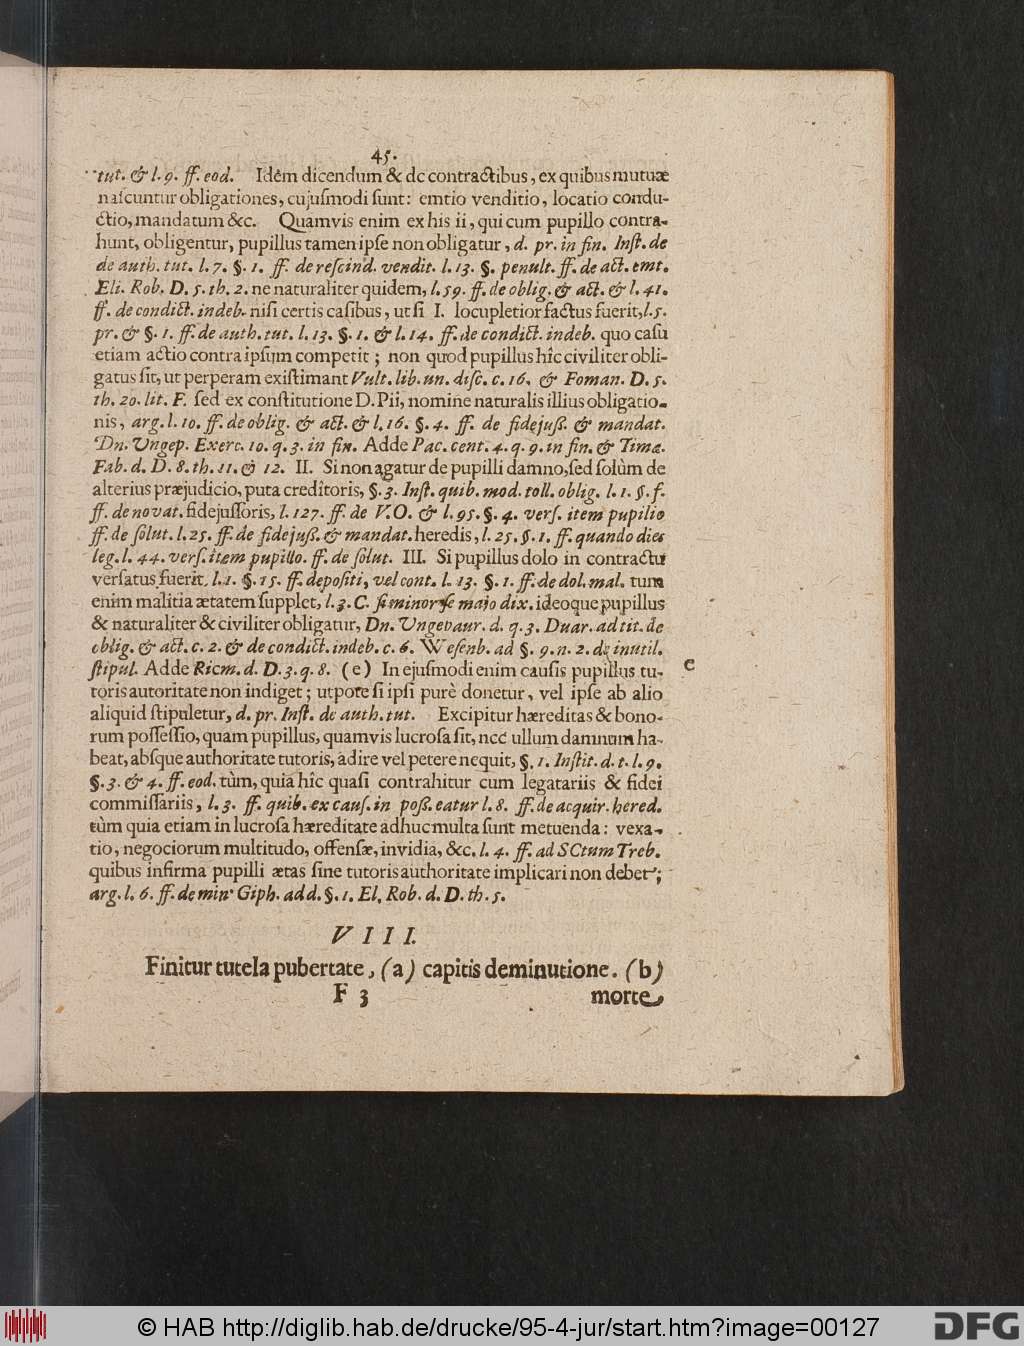 45.
tut. & l. 9. ff. eod. Idem dicendum & de contractibus, ex quibus mutuæ
naſcuntur obligationes, cujuſmodi ſunt: emtio venditio, locatio condu-
ctio, mandatum &c. Quamvis enim ex his ii, qui cum pupillo contra-
hunt, obligentur, pupillus tamen ipſe non obligatur, d. pr. in fin. Inſt. de
de auth. tut. l. 7. §. 1. ff. de reſcind. vendit. l. 13. §. penult. ff. de act. emt.
Eli. Rob. D. 5. th. 2. ne naturaliter quidem, l. 59. ff. de oblig. & act. & l. 41.
ff. de condict. indeb. niſi certis caſibus, ut ſi I. locupletior factus fuerit, l. 5.
pr. & §. 1. ff. de auth. tut. l. 13. §. 1. & l. 14. ff. de condict. indeb. quo caſu
etiam actio contra ipſum competit; non quod pupillus hîc civiliter obli-
gatus ſit, ut perperam exiſtimant Vult. lib. un. diſc. c. 16. & Foman. D. 5.
th. 20. lit. F. ſed ex conſtitutione D. Pii, nomine naturalis illius obligatio-
nis, arg. l. 10. ff. de oblig. & act. & l. 16. §. 4. ff. de fidejuß. & mandat.
Dn. Ungep. Exerc. 10. q. 3. in fin. Adde Pac. cent. 4. q. 9. in fin. & Timæ.
Fab. d. D. 8. th. 11. & 12. II. Si non agatur de pupilli damno, ſed ſolùm de
alterius præjudicio, puta creditoris, §. 3. Inſt. quib. mod. toll. oblig. l. 1. §. f.
ff. de novat. fidejuſſoris, l. 127. ff. de V. O. & l. 95. §. 4. verſ. item pupillo
ff. de ſolut. l. 25. ff. de fidejuß. & mandat. heredis, l. 25. §. 1. ff. quando dies
leg. l. 44. verſ. item pupillo. ff. de ſolut. III. Si pupillus dolo in contractu
verſatus fuerit, l. 1. §. 15. ff. depoſiti, vel cont. l. 13. §. 1. ff. de dol. mal. tum
enim malitia ætatem ſupplet, l. 3. C. ſi minor ſe majo dix. ideoque pupillus
& naturaliter & civiliter obligatur, Dn. Ungevaur. d. q. 3. Duar. ad tit. de
oblig. & act. c. 2. & de condict. indeb. c. 6. Weſenb. ad §. 9. n. 2. de inutil.
ſtipul. Adde Ricm. d. D. 3. q. 8. (e) In ejuſmodi enim cauſis pupillus tu-
e
toris autoritate non indiget; utpote ſi ipſi purè donetur, vel ipſe ab alio
aliquid ſtipuletur, d. pr. Inſt. de auth. tut. Excipitur hæreditas & bono-
rum poſſeſſio, quam pupillus, quamvis lucroſa ſit, nec ullum damnum ha-
beat, absque authoritate tutoris, adire vel petere nequit, §. 1. Inſtit. d. t. l. 9.
§. 3. & 4. ff. eod. tùm, quia hîc quaſi contrahitur cum legatariis & fidei
commiſſariis, l. 3. ff. quib. ex cauſ. in poß. eatur l. 8. ff. de acquir. hered.
tùm quia etiam in lucroſa hæreditate adhuc multa ſunt metuenda: vexa-
tio, negociorum multitudo, offenſæ, invidia, &c. l. 4. ff. ad SCtum Treb.
quibus infirma pupilli ætas ſine tutoris authoritate implicari non debet;
arg. l. 6. ff. de min. Giph. add. §. 1. El. Rob. d. D. th. 5.
VIII.
Finitur tutela pubertate, (a) capitis deminutione. (b)
F 3 morte
© HAB http://diglib.hab.de/drucke/95-4-jur/start.htm?image=00127
DFG